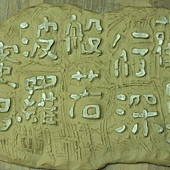 行深
般若
波羅
蜜多